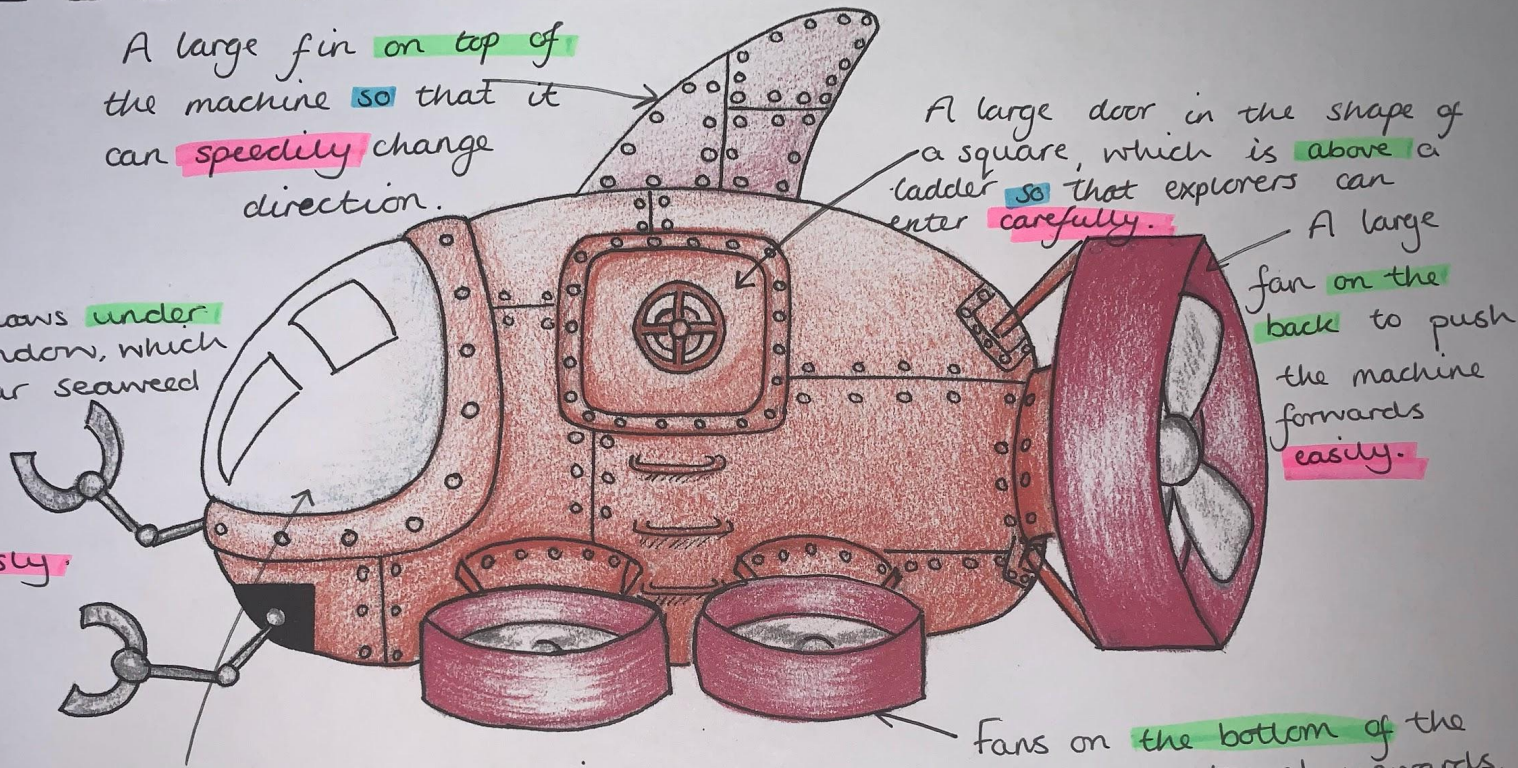 A large fin on top of
the machine so that it
can speedily change
direction.
A large door in the shape of
a square, which is above a
ladder so that explorers can
enter carefully.
A large
fan on the
back to push
the machine
forwards
easily.
under
which
seaweed
Fans on the bottom of the